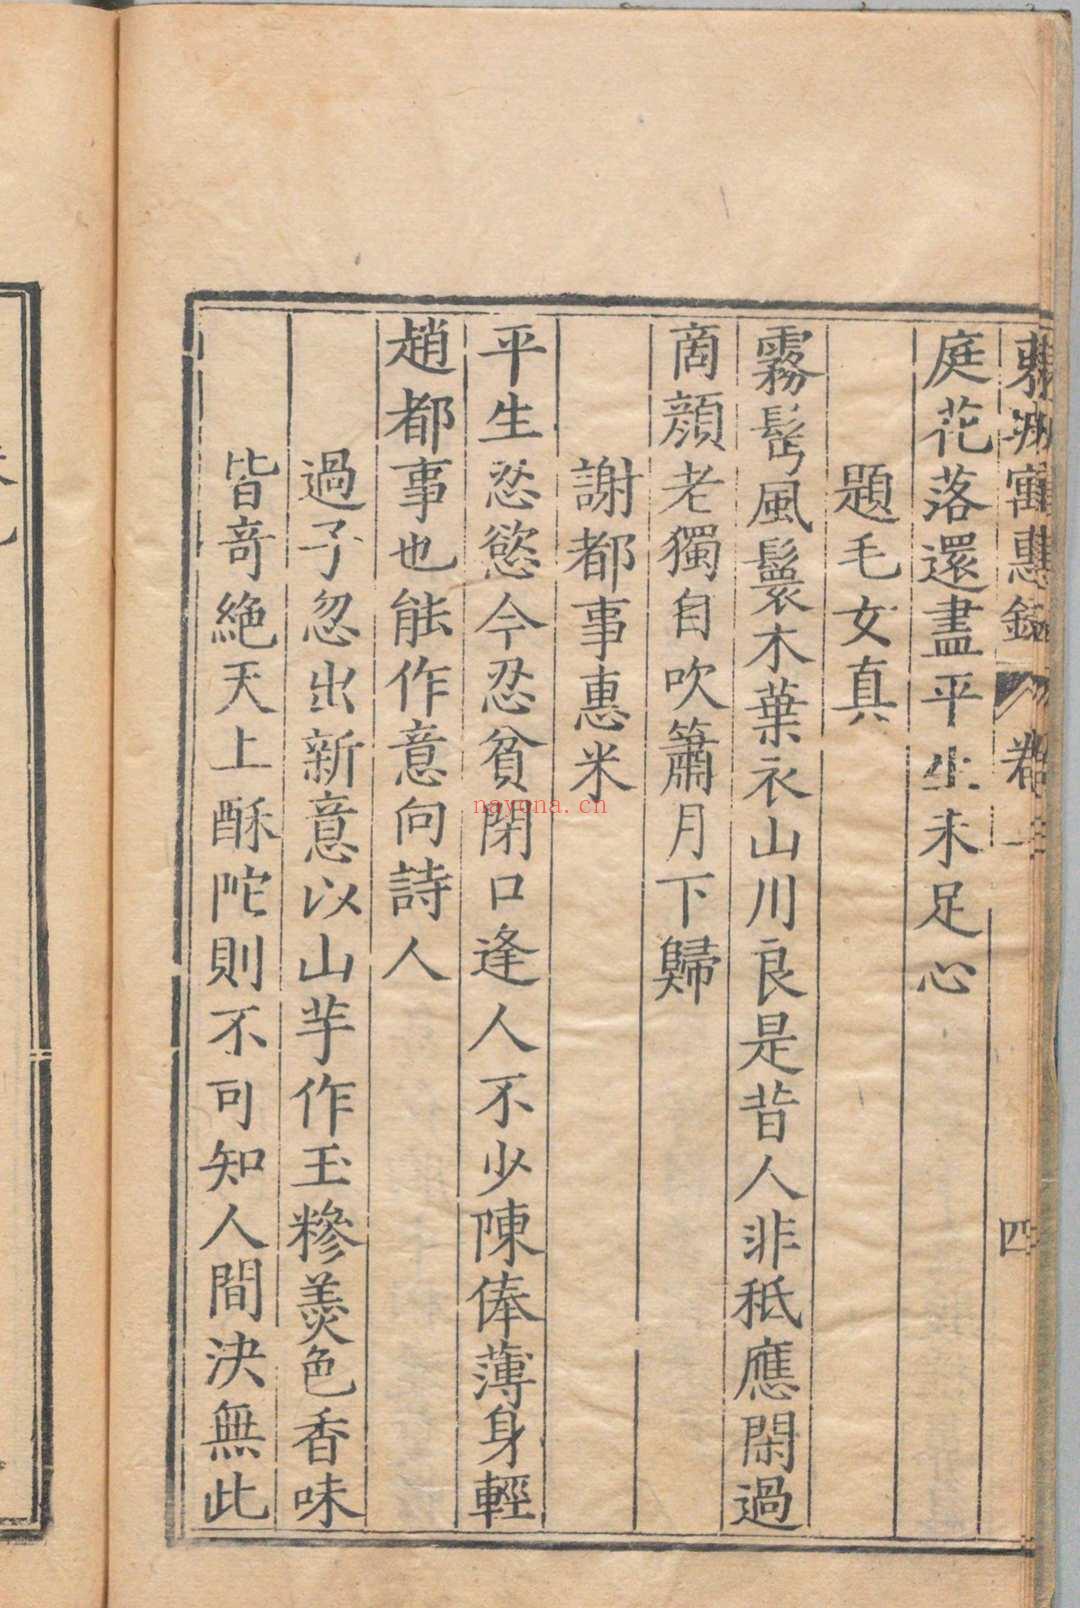 東坡寓惠錄 卷二 四
庭花落還盡平生未足心
題毛女真
霧鬂風鬟木葉衣山川良是昔人非秪應閑過
商顏老獨自吹簫月下歸
謝都事惠米
平生忍慾今忍貧閉口逢人不少陳俸薄身輕
趙都事也能作意向詩人
過子忽出新意以山芋作玉糝羹色香味
皆奇絶天上酥陀則不可知人間決無此
nayona.cn